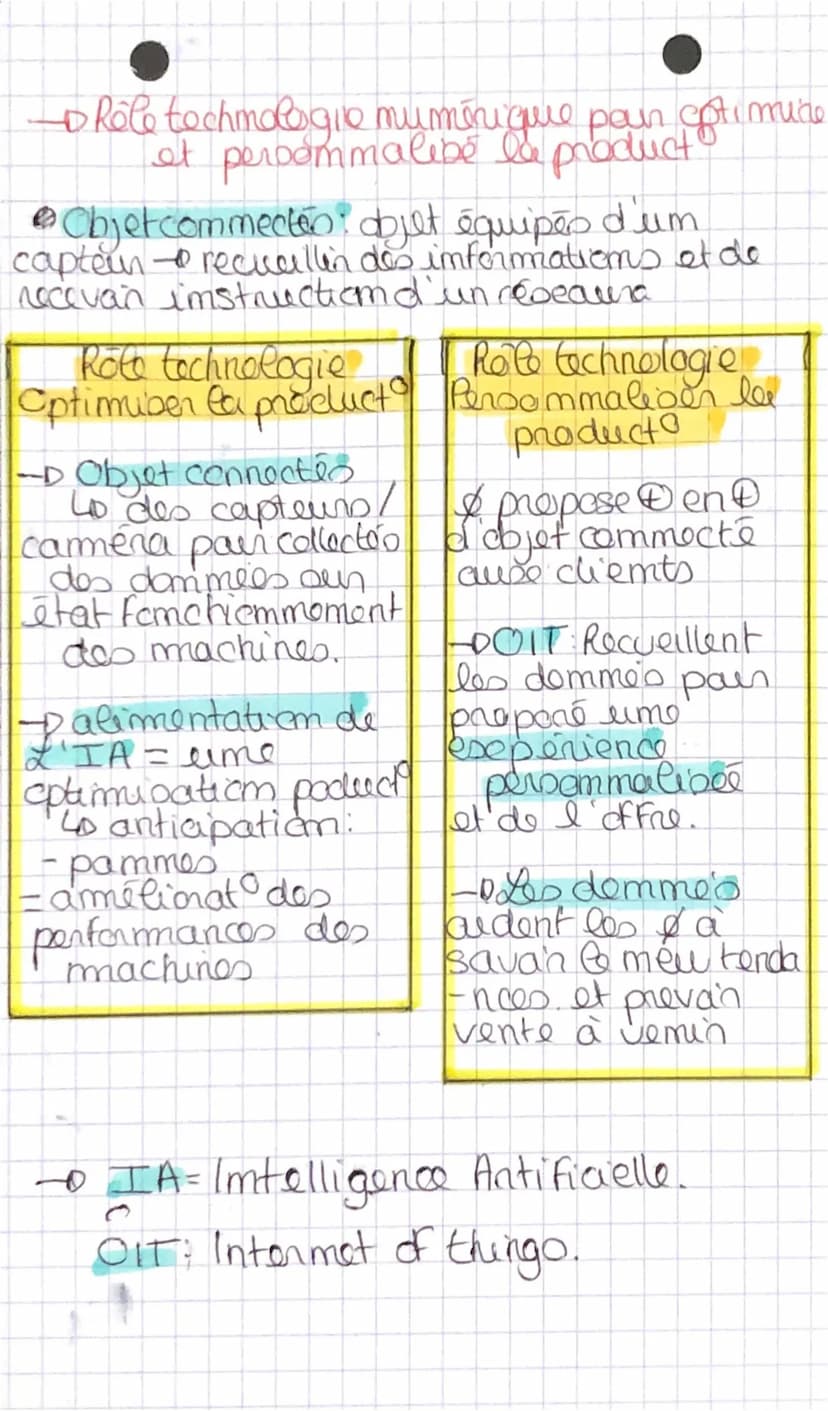 → Rôle technologie numérique pour optimiser
et personnalisé la product°
Objet connectés: objet équipés d'un
capteur → recueillir des informations et de
recevoir instruction d'un réseaux
Rôle technologie
Optimiser la product°
→ Objet connectés
↳ des capteurs/
camméra pour collectés
des données sur
état fonctionnement
des machines.
→ alimentation de
l'IA = une
optimisation poduct°
↳ anticipation:
- pannes
= améliorat° des
performances des
machines
Rôle technologie
Personnaliser la
product°
propose ⊕ en ⊕
d'objet connecté
aux clients
→ OIT: Recueillent
les données pour
proposé une
expérience
personnalisée
et de l'offre.
→ Les données
aident les à
savoir les tenda
-nces et prevoir
vente à venir
→ IA = Intelligence Artificielle.
OIT: Internet of things.